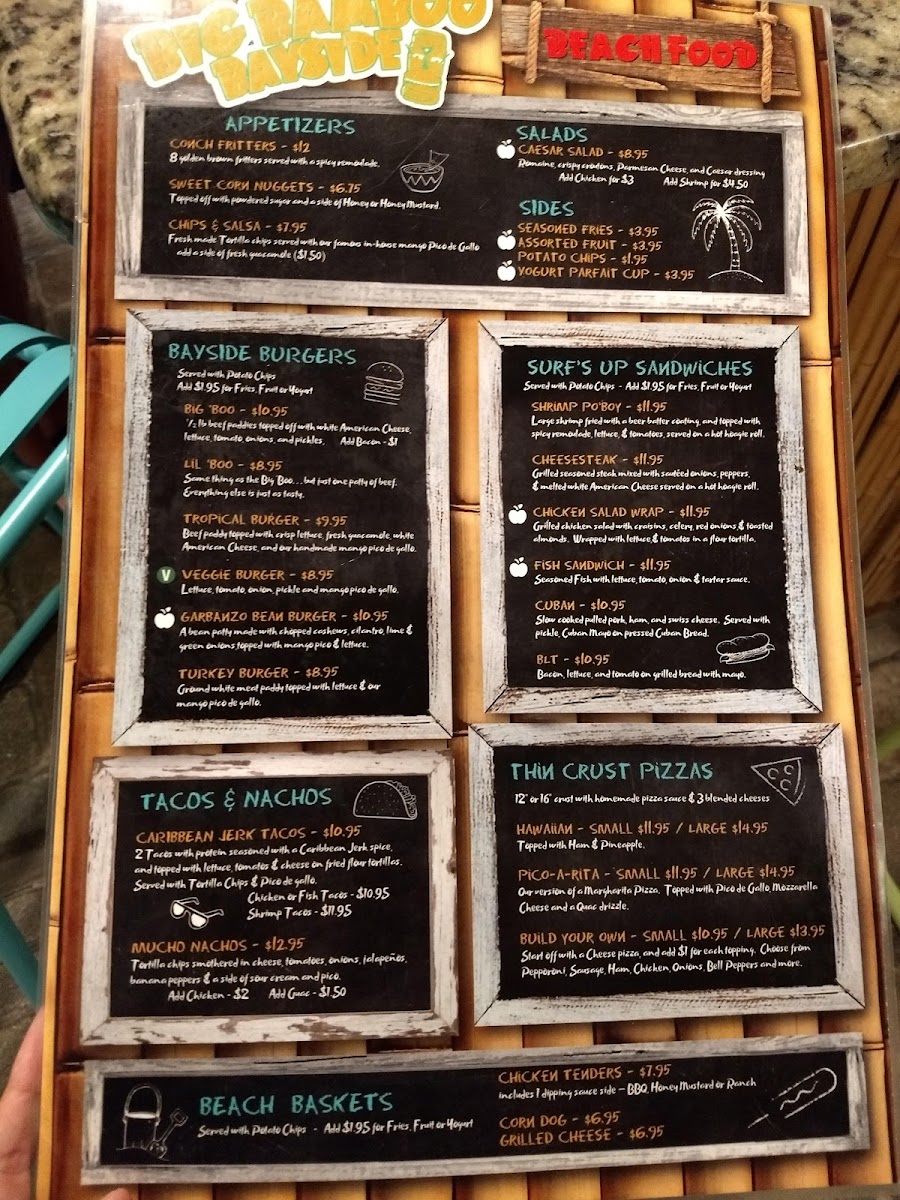 BIG BAMBOO
BAYSIDE
BEACH FOOD
APPETIZERS
CONCH FRITTERS - $12
8 golden brown fritters served with a spicy remoulade.
SWEET CORN NUGGETS - $6.75
Topped off with powdered sugar and a side of Honey or Honey Mustard.
CHIPS & SALSA - $7.95
Fresh made Tortilla chips served with our famous in-house mango Pico de Gallo
add a side of fresh guacamole ($1.50)
SALADS
CAESAR SALAD - $8.95
Romaine, crispy croutons, Parmesan Cheese, and Caesar dressing
Add Chicken for $3 Add Shrimp for $4.50
SIDES
SEASONED FRIES - $3.95
ASSORTED FRUIT - $3.95
POTATO CHIPS - $1.95
YOGURT PARFAIT CUP - $3.95
BAYSIDE BURGERS
Served with Potato Chips
Add $1.95 for Fries, Fruit or Yogurt
BIG 'BOO - $10.95
1/2 lb beef paddies topped off with white American Cheese,
lettuce, tomato onions, and pickles. Add Bacon - $1
LIL 'BOO - $8.95
Same thing as the Big Boo...but just one patty of beef.
Everything else is just as tasty.
TROPICAL BURGER - $9.95
Beef paddy topped with crisp lettuce, fresh guacamole, white
American Cheese, and our handmade mango pico de gallo.
V VEGGIE BURGER - $8.95
Lettuce, tomato, onion, pickle and mango pico de gallo.
GARBANZO BEAN BURGER - $10.95
A bean patty made with chopped cashews, cilantro, lime &
green onions topped with mango pico & lettuce.
TURKEY BURGER - $8.95
Ground white meat paddy topped with lettuce & our
mango pico de gallo.
SURF'S UP SANDWICHES
Served with Potato Chips - Add $1.95 for Fries, Fruit or Yogurt
SHRIMP PO'BOY - $11.95
Large shrimp fried with a beer batter coating, and topped with
spicy remoulade, lettuce, & tomatoes, served on a hot hoagie roll.
CHEESESTEAK - $11.95
Grilled seasoned steak mixed with sautéed onions, peppers,
& melted white American Cheese served on a hot hoagie roll.
CHICKEN SALAD WRAP - $11.95
Grilled chicken salad with craisins, celery, red onions & toasted
almonds. Wrapped with lettuce & tomatoes in a flour tortilla.
FISH SANDWICH - $11.95
Seasoned Fish with lettuce, tomato, onion & tartar sauce.
CUBAN - $10.95
Slow cooked pulled pork, ham, and swiss cheese. Served with
pickle, Cuban Mayo on pressed Cuban Bread.
BLT - $10.95
Bacon, lettuce, and tomato on grilled bread with mayo.
TACOS & NACHOS
CARIBBEAN JERK TACOS - $10.95
2 Tacos with protein seasoned with a Caribbean Jerk spice,
and topped with lettuce, tomatos & cheese on fried flour tortillas.
Served with Tortilla Chips & Pico de gallo.
Chicken or Fish Tacos - $10.95
Shrimp Tacos - $11.95
MUCHO NACHOS - $12.95
Tortilla chips smothered in cheese, tomatoes, onions, jalapeños,
banana peppers & a side of sour cream and pico.
Add Chicken - $2 Add Guac - $1.50
THIN CRUST PIZZAS
12" or 16" crust with homemade pizza sauce & 3 blended cheeses
HAWAIIAN - SMALL $11.95 / LARGE $14.95
Topped with Ham & Pineapple.
PICO-A-RITA - SMALL $11.95 / LARGE $14.95
Our version of a Margharita Pizza. Topped with Pico de Gallo, Mozzarella
Cheese and a Guac drizzle.
BUILD YOUR OWN - SMALL $10.95 / LARGE $13.95
Start off with a Cheese pizza, and add $1 for each topping. Choose from
Pepporoni, Sausage, Ham, Chicken, Onions, Bell Peppers and more.
BEACH BASKETS
Served with Potato Chips - Add $1.95 for Fries, Fruit or Yogurt
CHICKEN TENDERS - $7.95
includes 1 dipping sauce side - BBQ, Honey Mustard or Ranch
CORN DOG - $6.95
GRILLED CHEESE - $6.95